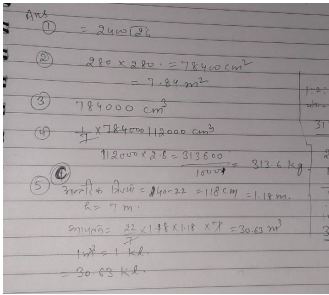 Ans
① = 2400 cm²
② 280 × 280 = 78400 cm²
= 7.84 m²
③ 784000 cm³
④ 1/7 × 784000 | 112000 cm³
112000 × 2.8 = 313600/1000 = 313.6 kg
⑤ त्रिज्या = 240-22 = 118 cm = 1.18 m.
h = 7 m.
= 22/7 × 1.18 × 1.18 × 7 = 30.63 m³
1 m³ = 1 kl.
= 30.63 kl.